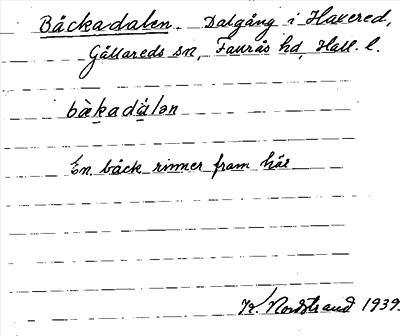 Bäckadalen. Dalgång i Havered,
Gällareds sn, Faurås hd, Hall. l.
bækadàlən
En bäck rinner fram här
K. Nordstrand 1939.